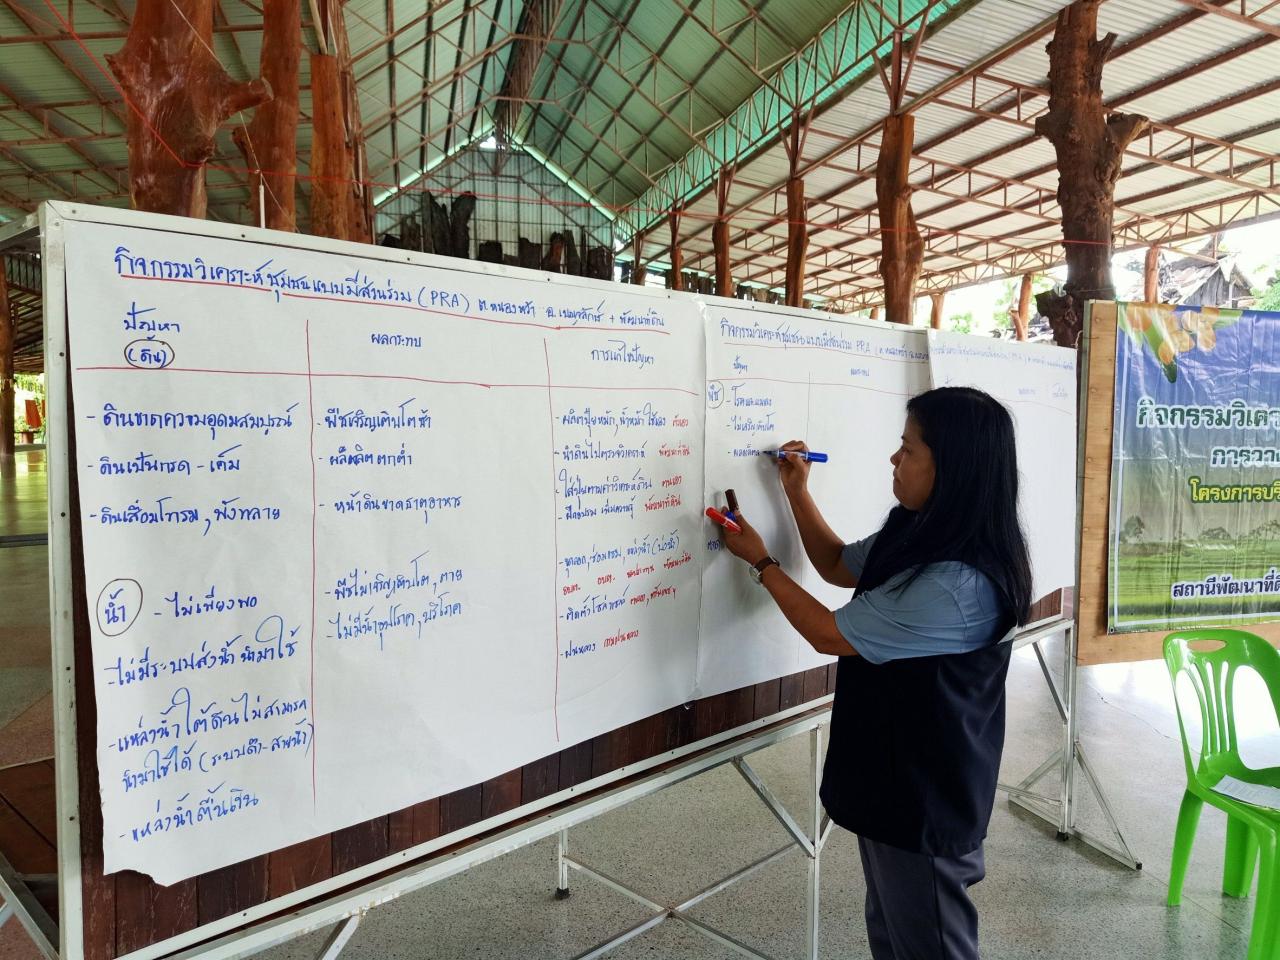 กิจกรรมวิเคราะห์ชุมชนแบบมีส่วนร่วม (PRA) ต.หนองหว้า อ.เบญจลักษ์ + พัฒนาที่ดิน
ปัญหา
ผลกระทบ
การแก้ไขปัญหา
(ดิน)
- ดินขาดความอุดมสมบูรณ์
- ดินเป็นกรด - เค็ม
- ดินเสื่อมโทรม, พังทลาย
น้ำ - ไม่เพียงพอ
- ไม่มีระบบส่งน้ำ นำมาใช้
- แหล่งน้ำใต้ดินไม่สามารถ
นำมาใช้ได้ (ระบบ
- แหล่งน้ำตื้นเขิน
- พืชเจริญเติบโตช้า
- ผลผลิตตกต่ำ
- หน้าดินขาดธาตุอาหาร
- พืชไม่เจริญเติบโต, ตาย
- ไม่มีน้ำอุปโภค, บริโภค
- ผลิตปุ๋ยหมัก, น้ำหมัก ใช้เอง
- นำดินไปตรวจวิเคราะห์ พัฒนาที่ดิน
- ใส่ปุ๋ยตามค่าวิเคราะห์ดิน
- ฝึกอบรม เพิ่มความรู้ พัฒนาที่ดิน
- ขุดลอก, ซ่อมแซม, แหล่งน้ำ (บ่อน้ำ)
- ติดตั้งโซล่าเซลล์
- ฝนหลวง กรมฝนหลวง
กิจกรรมวิเคราะห์ชุมชนแบบมีส่วนร่วม PRA
ปัญหา
ผลกระทบ
พืช - โรคและแมลง
- ไม่เจริญเติบโต
- ผลผลิต
กิจกรรมวิเครา
การวา
โครงการบริ
สถานีพัฒนาที่ดิ